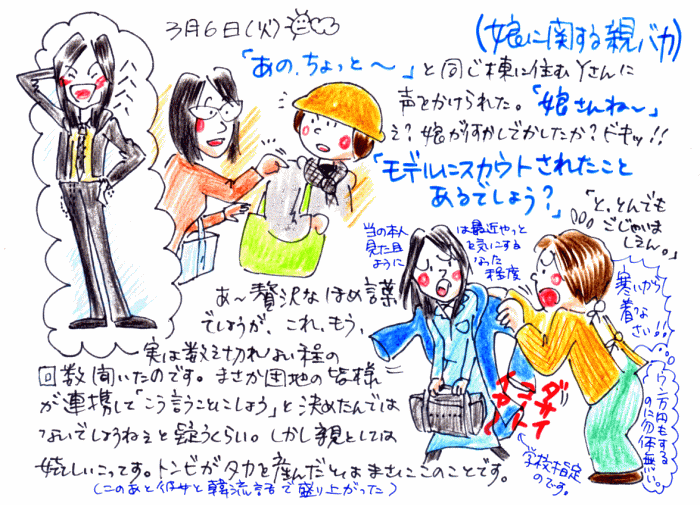 3月6日(火)
(娘に関する親バカ)
「あの、ちょっと〜」と同じ棟に住むYさんに
声をかけられた。「娘さんね〜」
え?娘が何かしでかしたか?ドキッ!!
「モデルにスカウトされたこと
あるでしょう?」
「と、とんでも
ごじゃいま
しぇん。」
当の本人は最近やっと
見た目を気にする
ようになった
程度
あ〜贅沢なほめ言葉
でしょうが、これ、もう、
実は数え切れない程の
回数聞いたのです。まさか団地の皆様
が連携して「こう言うことにしよう」と決めたんでは
ないでしょうねえと疑うくらい。しかし親としては
嬉しいこってす。トンビがタカを産んだとはまさにこのことです。
(このあと彼女と韓流話で盛り上がった)
寒いから
着な
さい!!
ウン万円もする
のに勿体無い。
ダサイ
コート
学校指定
のです。